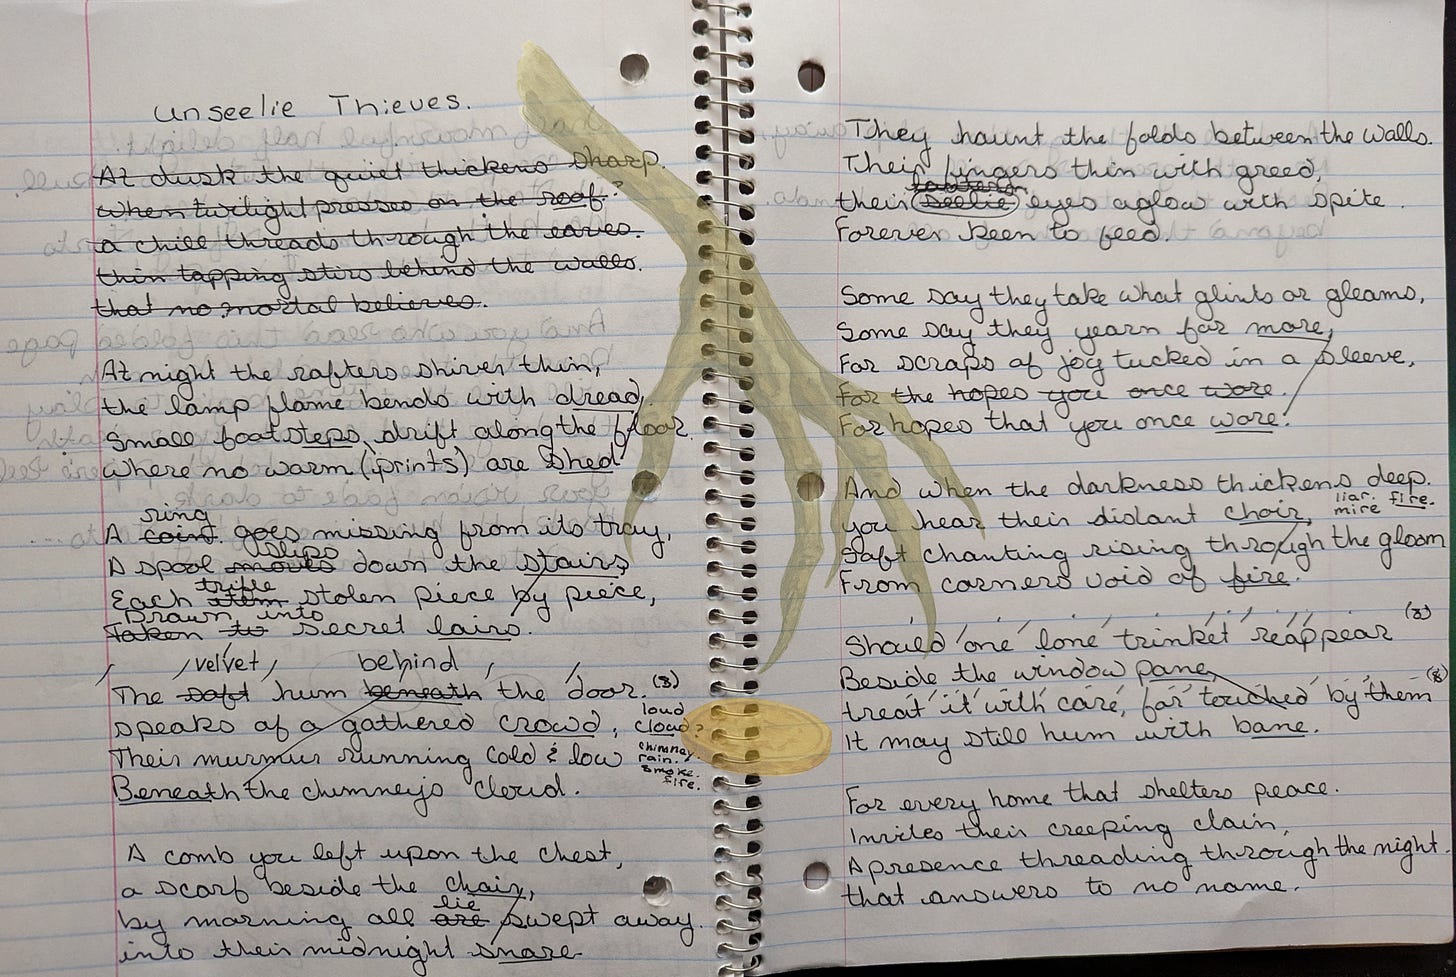 Unseelie Thieves.
At dusk the quiet thickens sharp.
when twilight presses on the roof?
a chill threads through the eaves.
thin tapping stirs behind the walls.
that no mortal believes.
At night the rafters shiver thin,
the lamp flame bends with dread,
Small footsteps drift along the floor.
where no warm (prints) are shed
ring
A coin goes missing from its tray,
slips
A spool moves down the stairs,
trifle
Each item stolen piece by piece,
Drawn into
Taken to secret lairs.
velvet behind
The soft hum beneath the door. (3)
speaks of a gathered crowd, loud cloud?
Their murmur running cold & low chimney rain. smoke. fire.
Beneath the chimney's cloud.
A comb you left upon the chest,
a scarf beside the chair,
lie
by morning all are swept away.
into their midnight snare
They haunt the folds between the walls.
Their fingers thin with greed,
their seelie eyes aglow with spite.
Forever keen to feed.
Some say they take what glints or gleams,
Some say they yearn for more,
For scraps of joy tucked in a sleeve,
For the hopes you once wore.
For hopes that you once wore.
And when the darkness thickens deep.
you hear their distant choir, liar. mire fire.
Soft chanting rising through the gloom
From corners void of fire.
Should one lone trinket reappear (3)
Beside the window pane,
treat it with care, for touched by them (8)
It may still hum with bane.
For every home that shelters peace.
Invites their creeping claim,
A presence threading through the night.
that answers to no name.